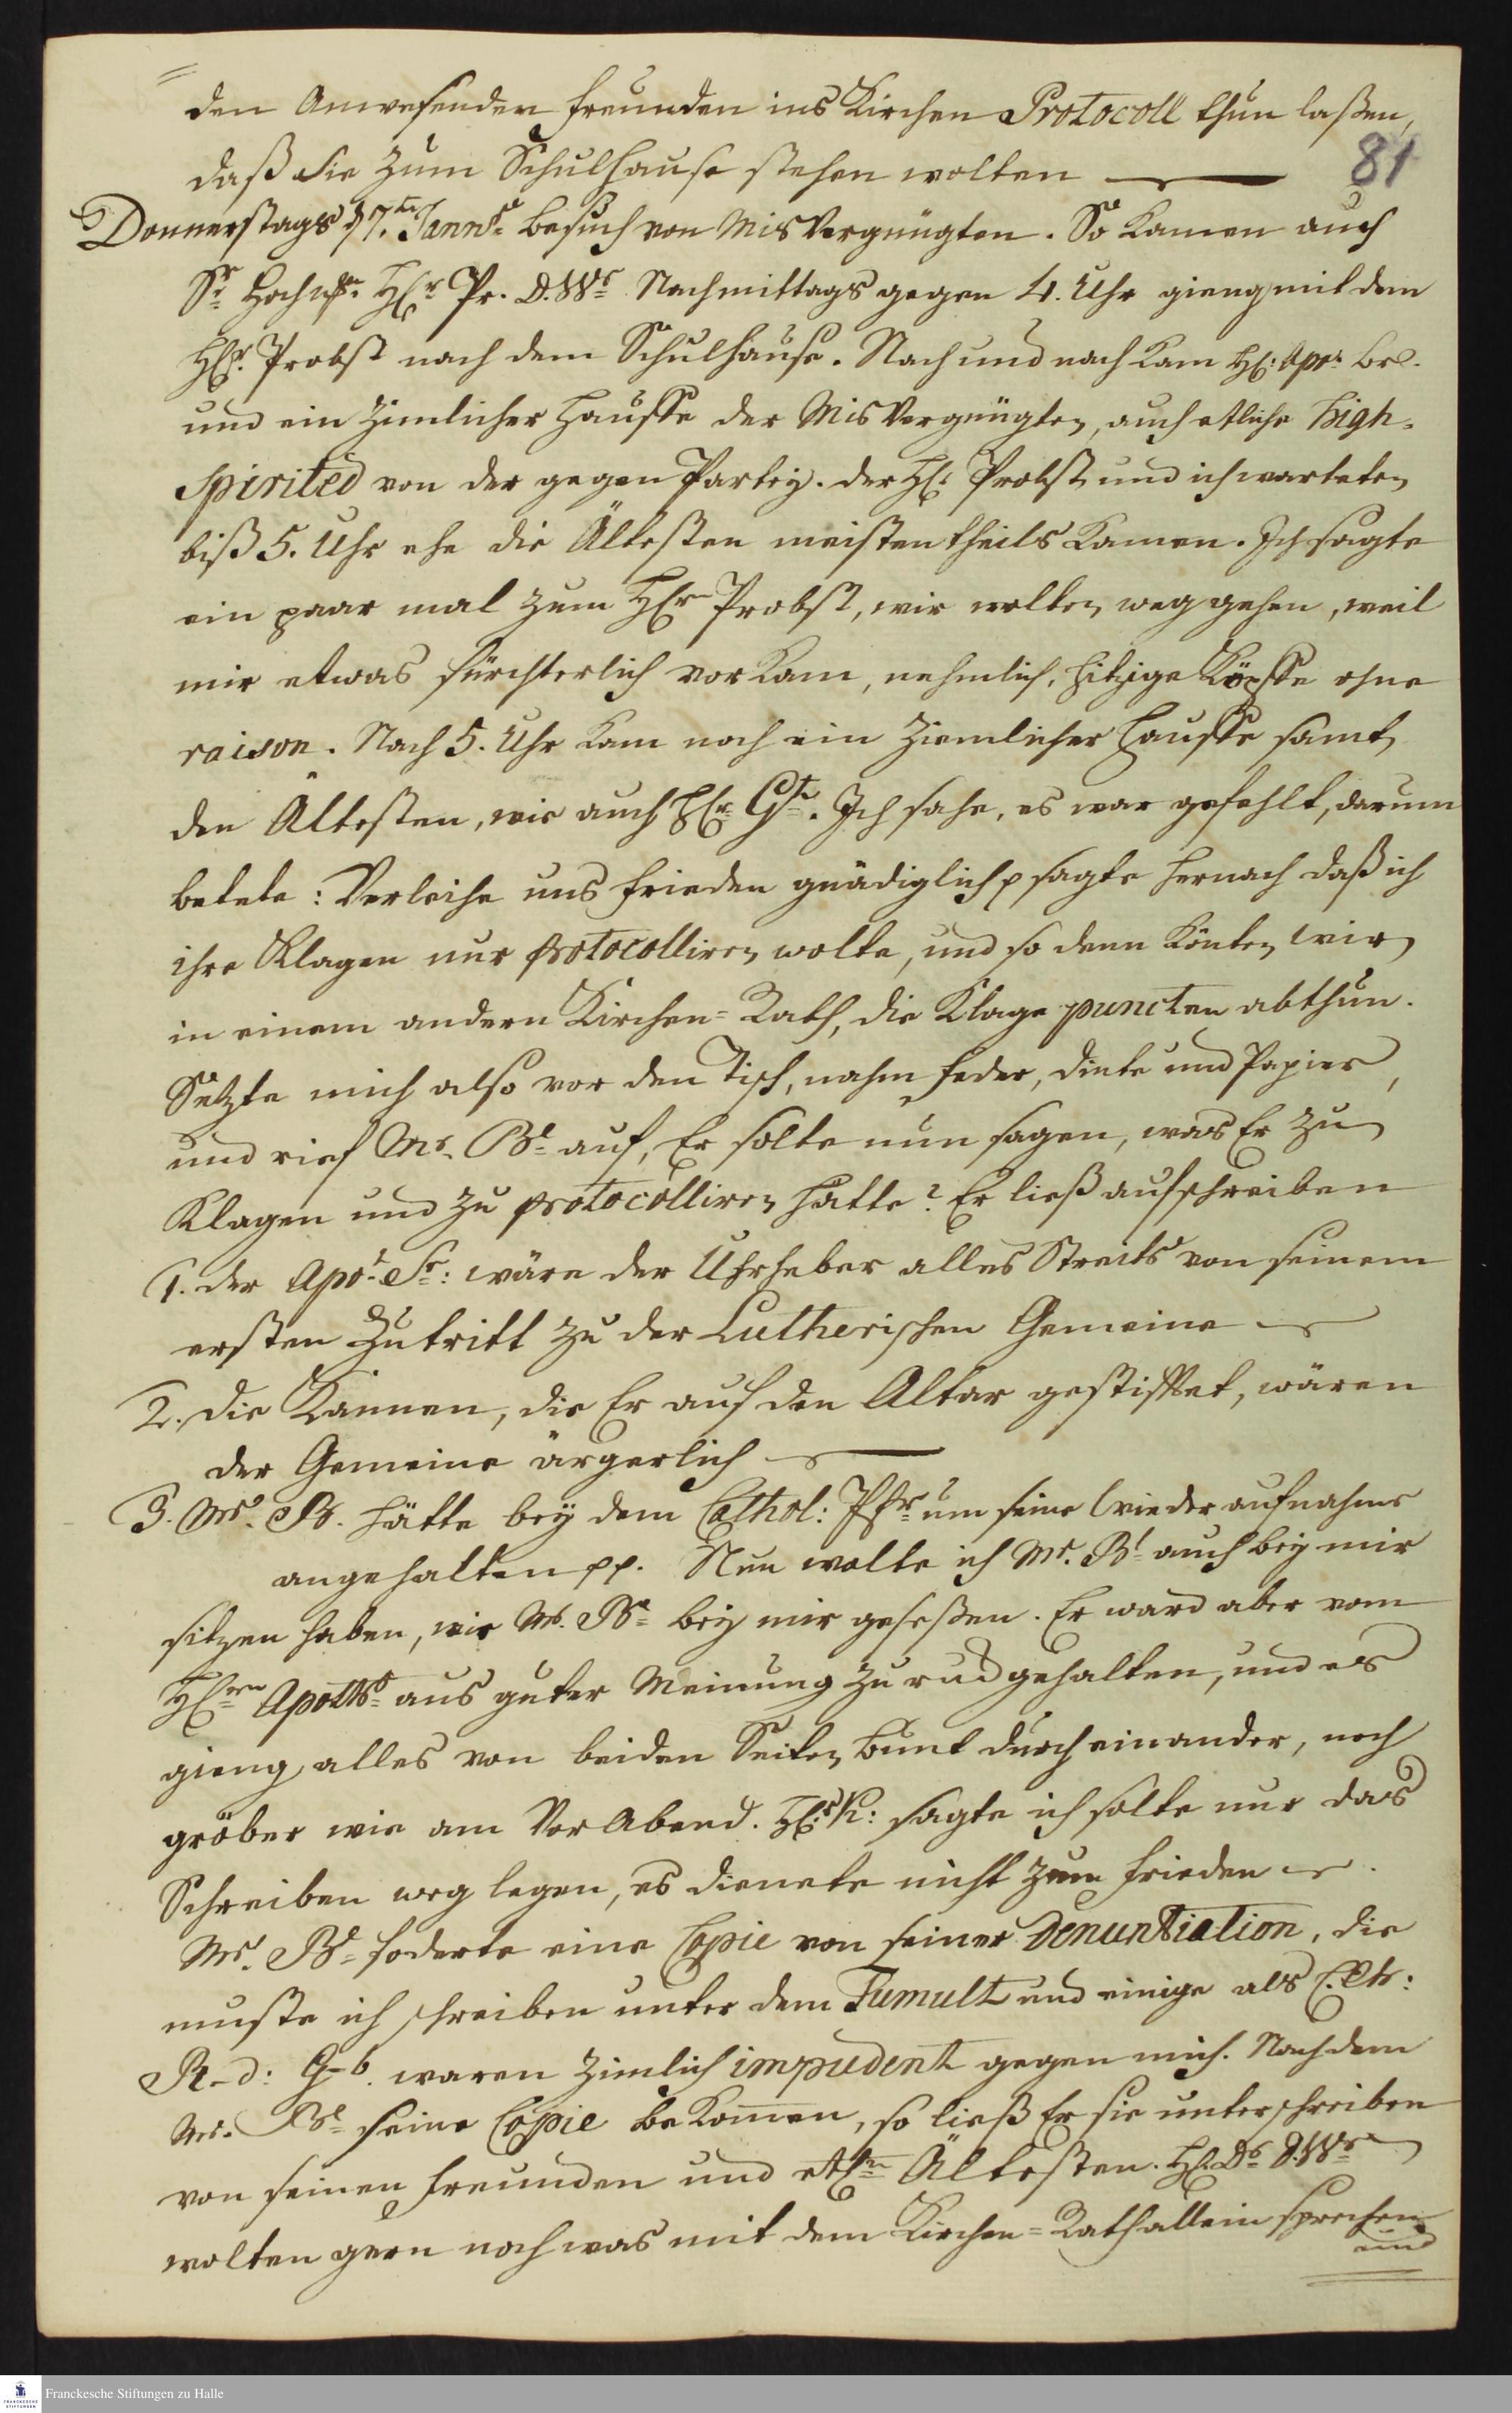 den Anwesenden Freunden ins Kirchen Protocoll thun laßen,
81
daß Sie zum Schulhause stehen wolten
Donnerstags d 7.ten Janr. Besuch von MisVergnügten. So kamen auch
Sr. Hochw. Hr. Pr. D. Wr. Nachmittags gegen 4. Uhr gieng mit dem
Hr. Probst nach dem Schulhause. Nach und nach kam H. Apr. Br.
und ein zimlicher Hauffe der MisVergnügten, auch etliche high-
spirited von der gegen Partey. der H. Probst und ich warteten
biß 5. Uhr ehe die Ältesten meistentheils kamen. Ich sagte
ein paar mal zum Hr. Probst, wir wolten weg gehen, weil
mir etwas fürchterlich vorkam, nehmlich, hitzige Köpffe ohne
raison. Nach 5. Uhr kam noch ein ziemlicher Hauffe samt
den Ältesten, wie auch Hr. Gst. Ich sahe, es war gefehlt, darum
betete: Verleihe uns Frieden gnädiglich p sagte hernach daß ich
ihre Klagen nur protocolliren wolte, und so denn könten wir
in einem andern Kirchen-Rath, die Klage puncten abthun.
Setzte mich also vor den Tisch, nahm Feder, Dinte und Papier,
und rief Mr. Bl. auf, Er solte nun sagen, was Er zu
Klagen und zu protocolliren hätte? Er ließ aufschreiben
1. der Apor. Sr: wäre der Uhrheber alles Streits von seinem
ersten Zutritt zu der Lutherischen Gemeine
2. die Kannen, die Er auf den Altar gestifftet, wären
der Gemeine ärgerlich
3. Mr. B. hätte bey dem Cathol: Pfr. um seine Wiederaufnahme
angehalten pp. Nun wolte ich Mr. Bl. auch bey mir
sitzen haben, wie Mr. Br. bey mir geseßen. Er ward aber vom
Hrrn Apoth. aus guter Meinung zurück gehalten, und es
gieng alles von beiden Seiten bunt durch einander, noch
gröber wie am Vor Abend. H. K: sagte ich solte nur das
Schreiben weg legen, es dienete nicht zum Frieden
Mr. Bl. foderte eine Copie von seiner Denuntiation, die
muste ich schreiben unter dem Tumult und einige als
R-d: G-b. waren zimlich impudent gegen mich. Nachdem
Mr. Bl. seine Copie bekommen, so ließ Er sie unterschreiben
von seinen Freunden und etl. Ältesten. H. Dr. D. Wr.
wolten gern noch was mit dem Kirchen-Rath allein sprechen
und
Franckesche Stiftungen zu Halle